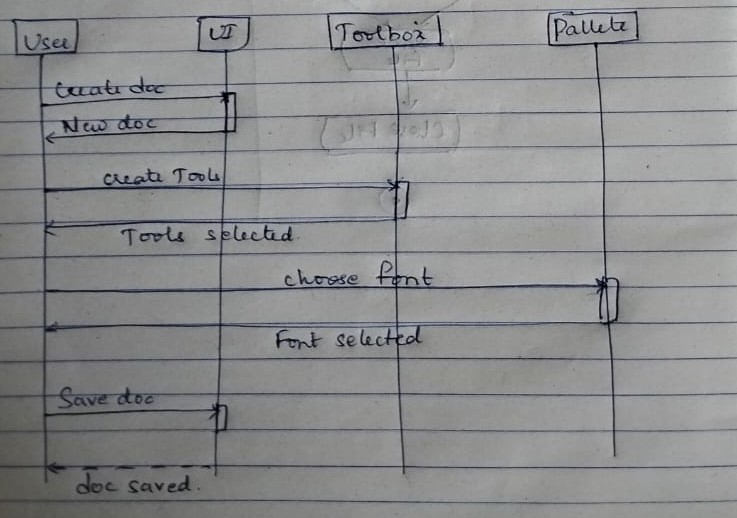 User UI Toolbox Pallete
Create doc
New doc
create Tools
Tools selected.
choose font
Font selected
Save doc
doc saved.